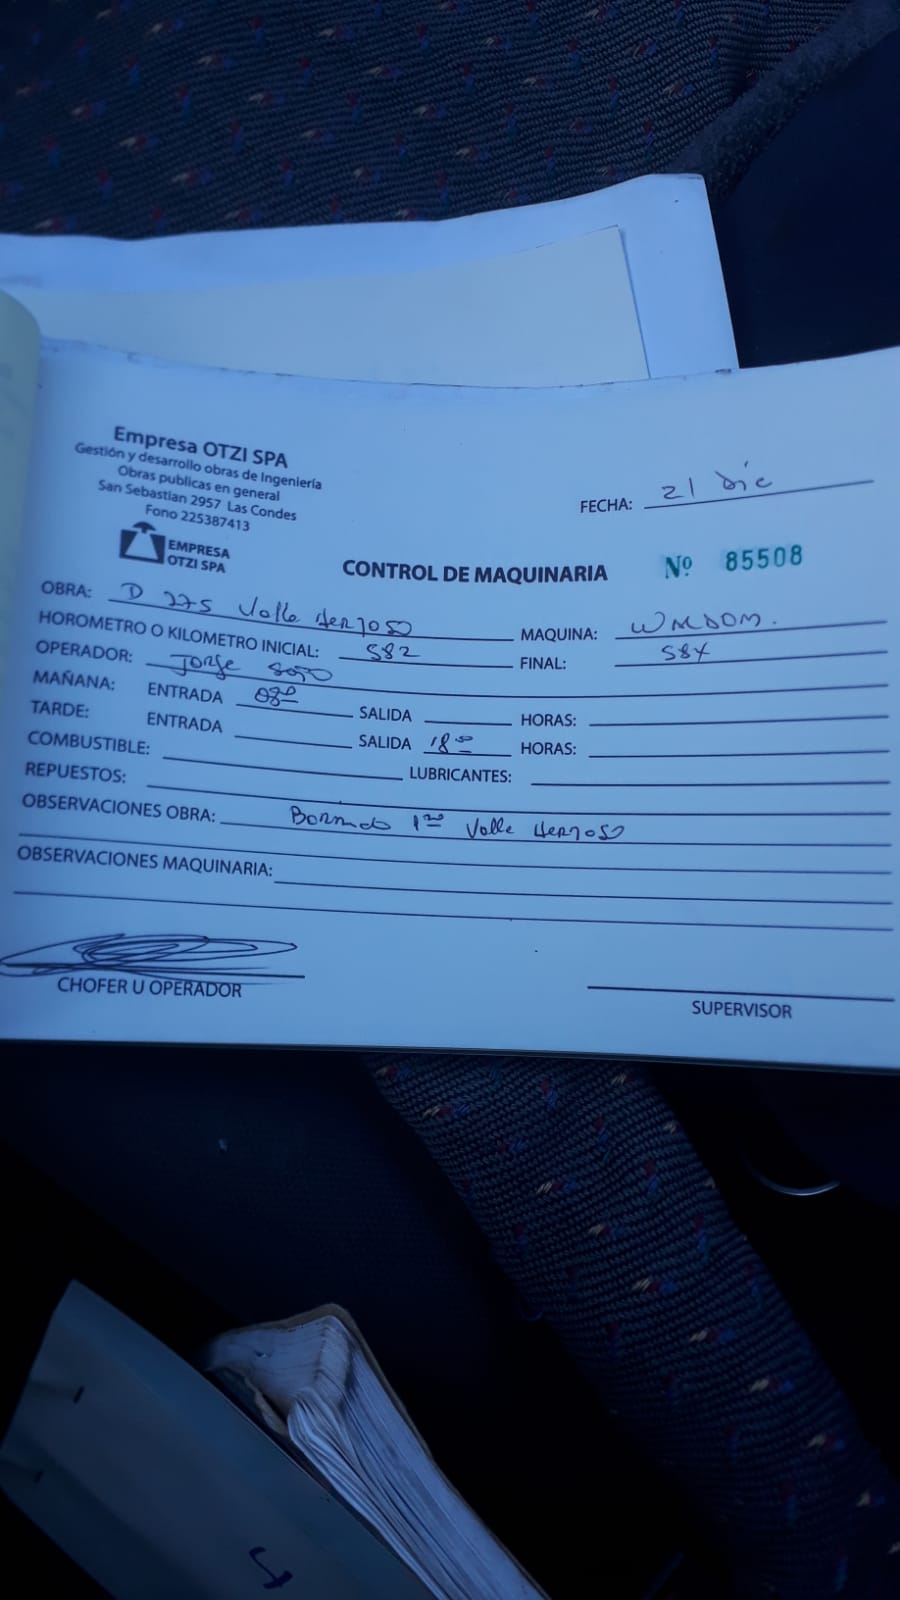 Empresa OTZI SPA
Gestión y desarrollo obras de Ingeniería
Obras publicas en general
San Sebastian 2957 Las Condes
Fono 225387413
EMPRESA
OTZI SPA
FECHA: 21 Dic
CONTROL DE MAQUINARIA Nº 85508
OBRA: D 275 Valle Hermoso MAQUINA:
HOROMETRO O KILOMETRO INICIAL: 582 FINAL:
OPERADOR: Jorge Soto
MAÑANA: ENTRADA 08⁰⁰ SALIDA HORAS:
TARDE: ENTRADA SALIDA 18⁰⁰ HORAS:
COMBUSTIBLE: LUBRICANTES:
REPUESTOS:
OBSERVACIONES OBRA: Valle Hermoso
OBSERVACIONES MAQUINARIA:
CHOFER U OPERADOR
SUPERVISOR